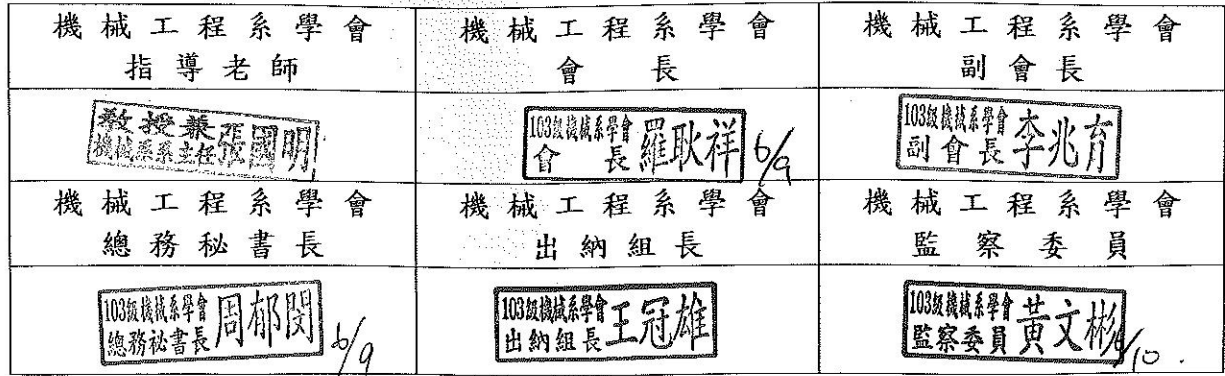 機械工程系學會
指導老師
機械工程系學會
會長
機械工程系學會
副會長
教授兼
機械系系主任
張國明
103級機械系學會
會長
羅耿祥
6/9
103級機械系學會
副會長
李兆育
機械工程系學會
總務秘書長
機械工程系學會
出納組長
機械工程系學會
監察委員
103級機械系學會
總務祕書長
周郁閔
6/9
103級機械系學會
出納組長
王冠雄
103級機械系學會
監察委員
黃文彬
6/10.